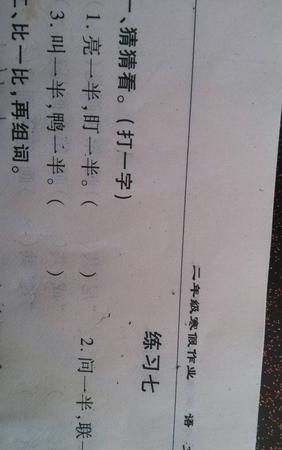 二年级寒假作业 语
练习七
一、猜猜看。(打一字)
1. 亮一半,盯一半。( ) 2. 问一半,联一
3. 叫一半,鸭一半。( )
二、比一比,再组词。